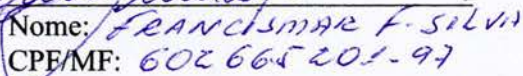 Nome: FRANCISMAR F. SILVA
CPF/MF: 602665201-97